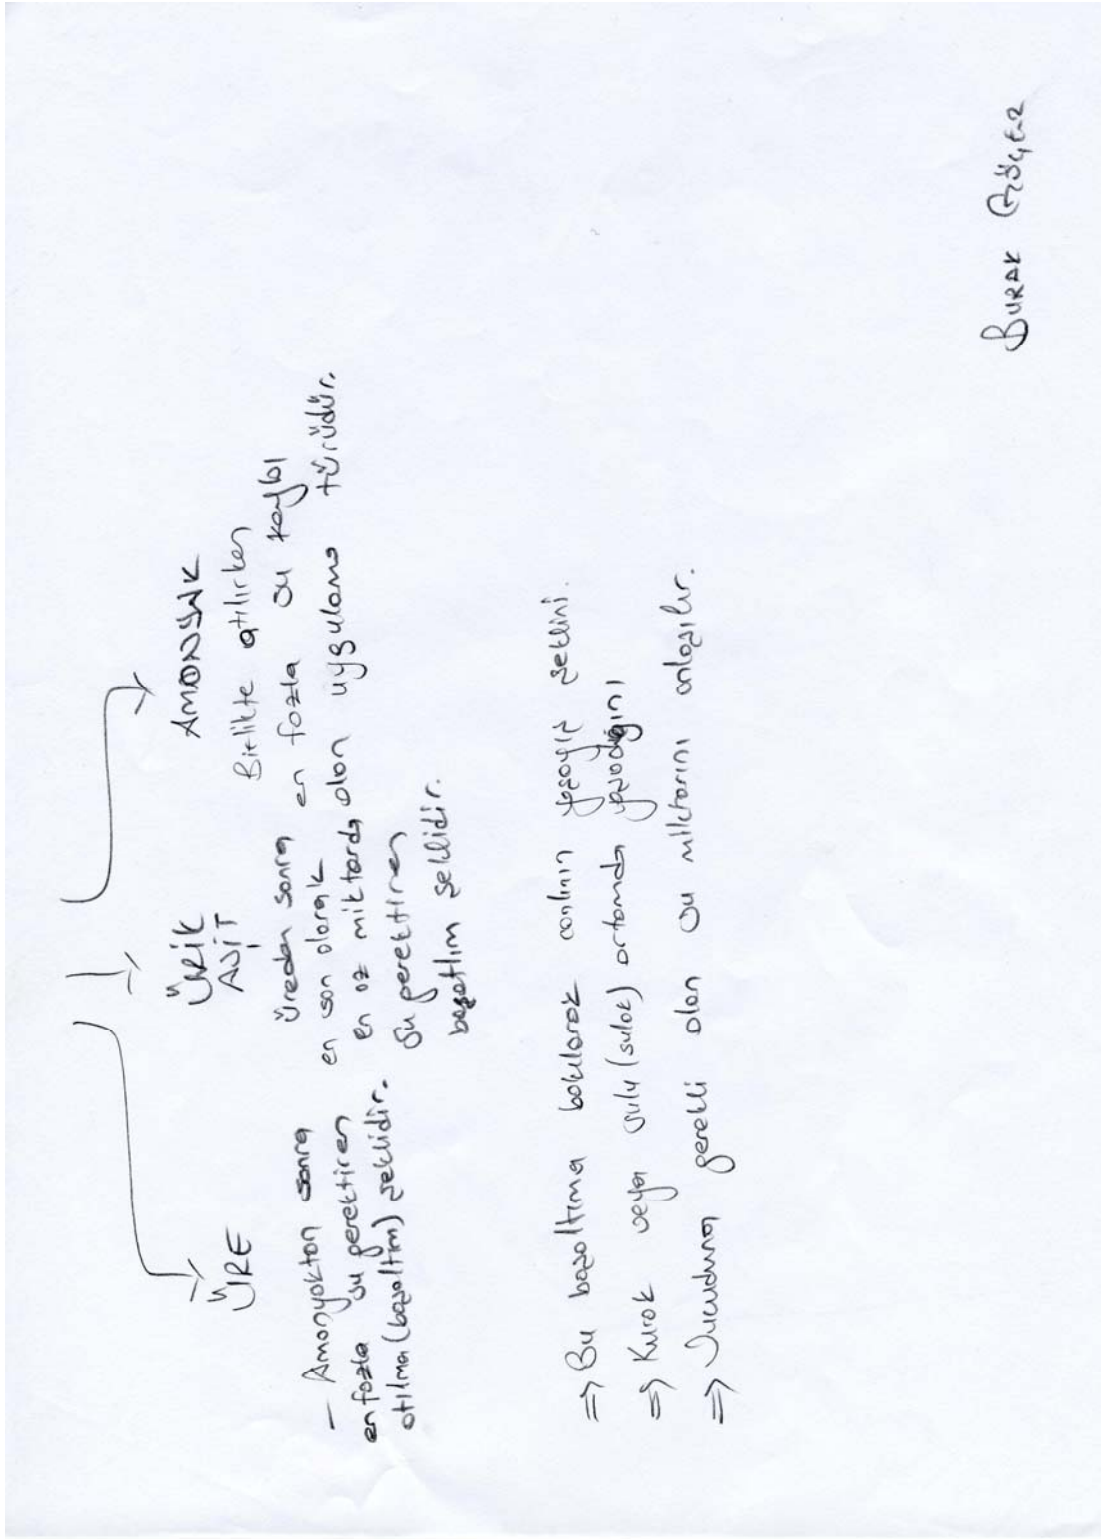 ÜRE
- Amonyaktan sonra
en fazla su gerektiren
atılma (boşaltım) şeklidir.
ÜRİK
ASİT
Üreden sonra
en son olarak
en az miktarda
su gerektiren
boşaltım şeklidir.
AMONYAK
Birlikte atılırken
en fazla su kaybı
olan uygulama türüdür.
⇒ Bu boşaltıma bakılarak canlının yaşayış şeklini.
⇒ Kurak veya sulu (sulak) ortamda yaşadığını
⇒ Vucuduna gerekli olan su miktarını anlaşılır.
BURAK GÖÇER